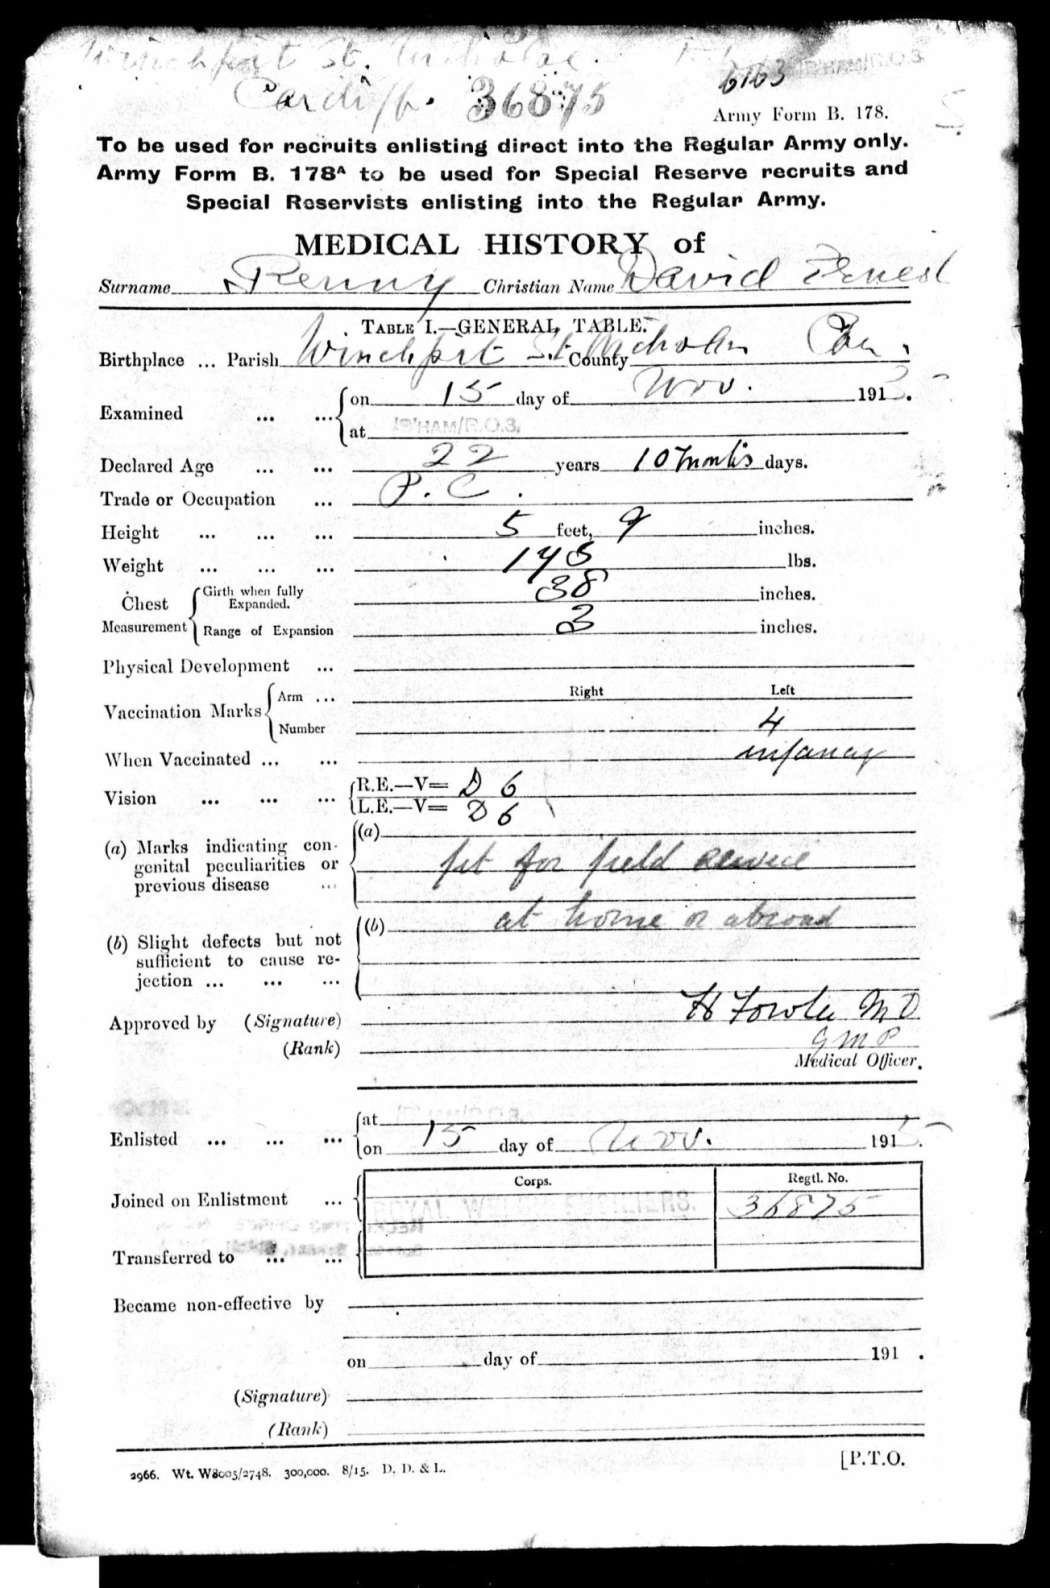 Winchpit St. Nicholas.
Cardiff. 36875
6163
B'HAM/R.O.3
Army Form B. 178.
To be used for recruits enlisting direct into the Regular Army only.
Army Form B. 178A to be used for Special Reserve recruits and
Special Reservists enlisting into the Regular Army.
MEDICAL HISTORY of
Surname Penny Christian Name David Ernest
TABLE I.—GENERAL TABLE.
Birthplace ... Parish Winchpit St. Nicholas County
Examined ... ... on 15 day of Nov. 1915.
at B'HAM/R.O.3.
Declared Age ... ... 22 years 10 months days.
Trade or Occupation ... P.C.
Height ... ... ... 5 feet, 9 inches.
Weight ... ... ... 145 lbs.
Chest Measurement Girth when fully Expanded. 38 inches.
Range of Expansion 3 inches.
Physical Development ...
Right Left
Vaccination Marks Arm ...
Number 4
When Vaccinated ... ... infancy
Vision ... ... ... R.E.—V= D 6
L.E.—V= D 6
(a) Marks indicating con-
genital peculiarities or
previous disease ...
(a) fit for field service
(b) Slight defects but not
sufficient to cause re-
jection ... ... ...
(b) at home or abroad
Approved by (Signature) H Fowler MD
(Rank) GMP
Medical Officer.
Enlisted ... ... ... at
on 15 day of Nov. 1915.
Corps. Regtl. No.
Joined on Enlistment ... ROYAL WELSH FUSILIERS. 36875
Transferred to ... ...
Became non-effective by
on day of 191 .
(Signature)
(Rank)
[P.T.O.
2966. Wt. W8005/2748. 300,000. 8/15. D. D. & L.